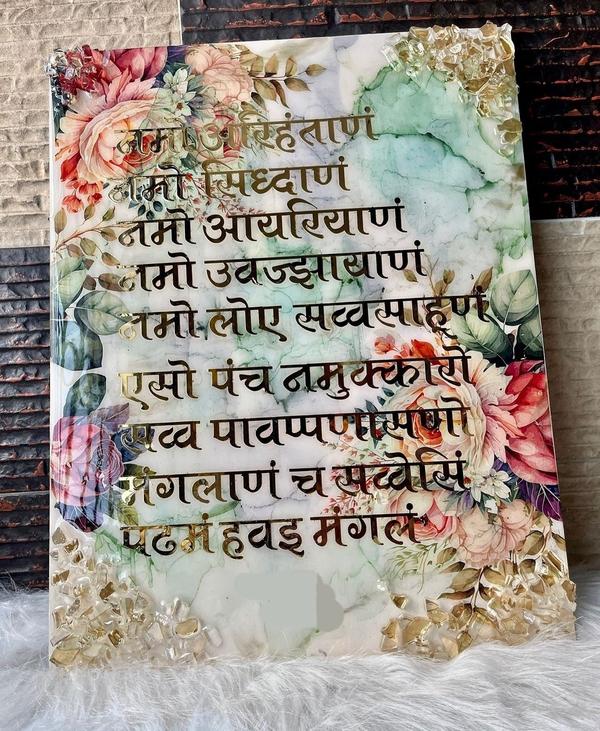 नमो अरिहंताणं
नमो सिध्दाणं
नमो आयरियाणं
नमो उवज्झायाणं
नमो लोए सव्वसाहूणं
एसो पंच नमुक्कारो
सव्व पावप्पणासणो
मंगलाणं च सव्वेसिं
पढमं हवइ मंगलं